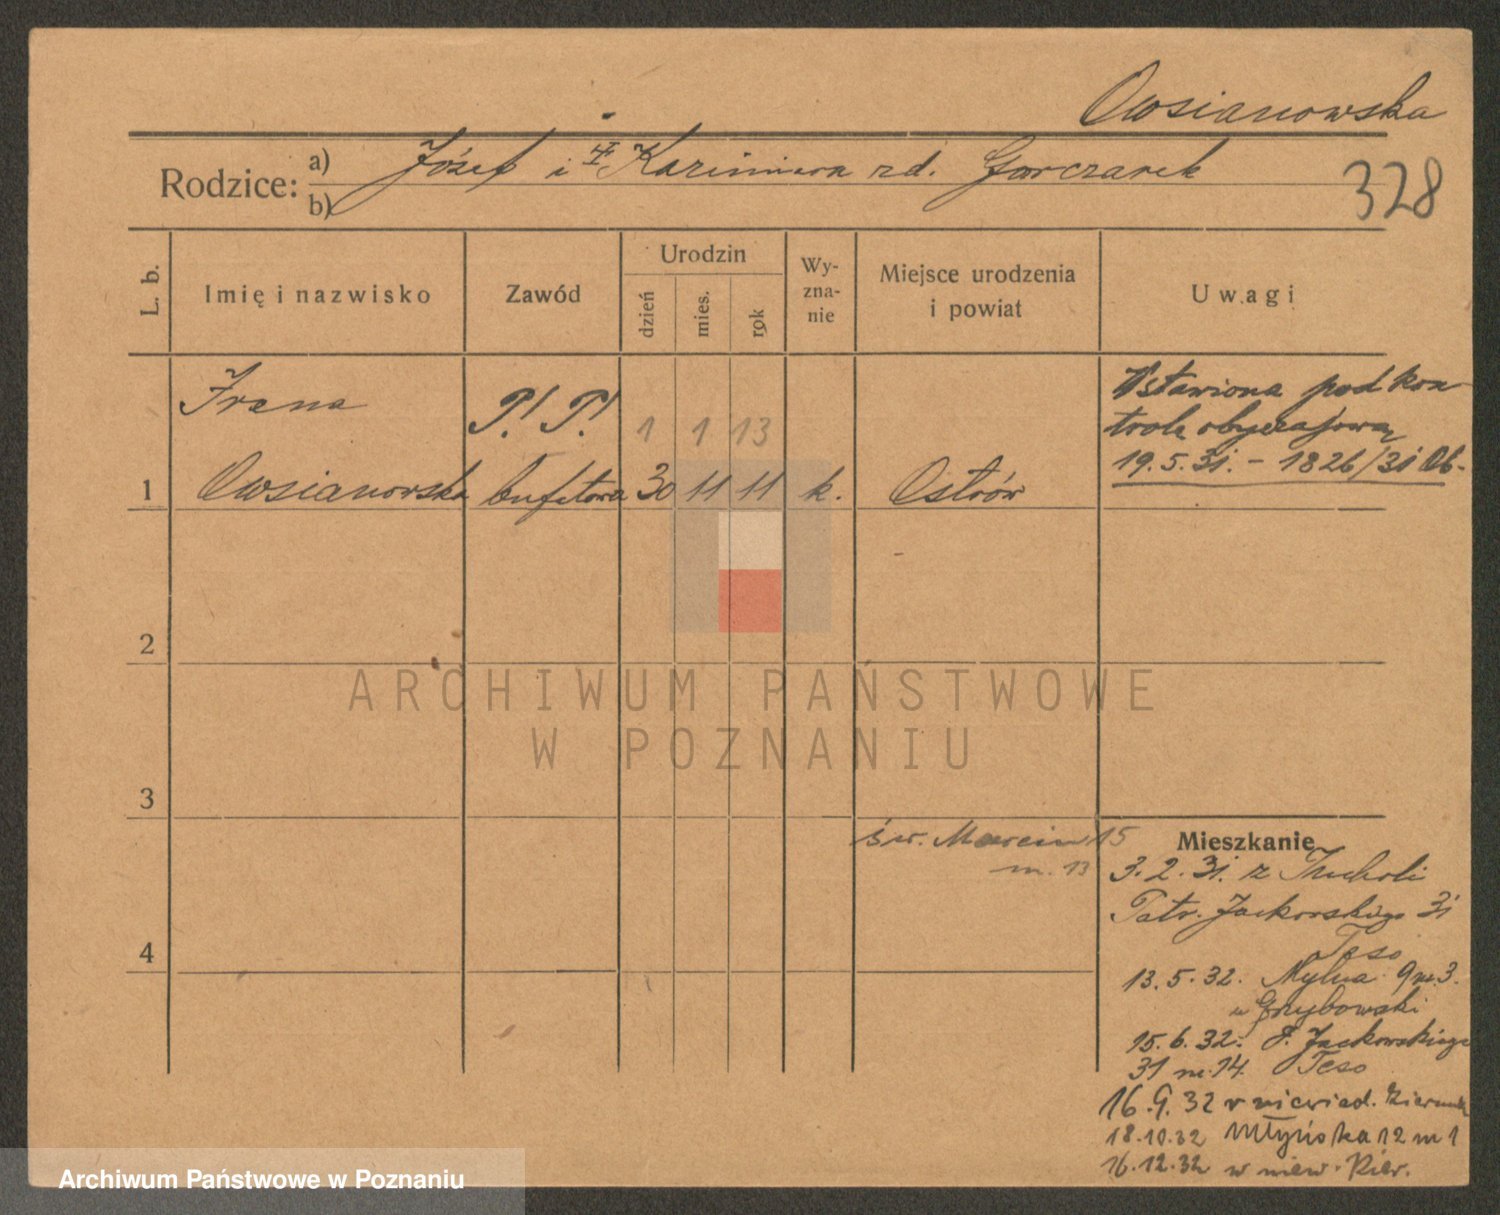 Owsianowska
Rodzice: a) Józef i Kazimiera rd. Gorczarek
b)
328
L. b.
Imię i nazwisko
Zawód
Urodzin
dzień
mies.
rok
Wy-
zna-
nie
Miejsce urodzenia
i powiat
Uwagi
Irena
P! P!
1 1 13
Wstawiona pod kon-
trolę obyczajową
19.5.31. - 1826/31 Ob.
1 Owsianowska bufetowa 30 11 11 k. Ostrów
2
ARCHIWUM PAŃSTWOWE
W POZNANIU
3
św. Marcin 15
m. 13
Mieszkanie
3.2.31. z Tucholi
Patr. Jackowskiego 31
Teso
4
13.5.32. Mylna 9 m. 3.
u Grzybowski
15.6.32. P. Jackowskiego
31 m. 14. Teso
16.9.32 w niewiad. kierunk
18.10.32 Młyńska 12 m 1
16.12.32 w niew. kier.
Archiwum Państwowe w Poznaniu